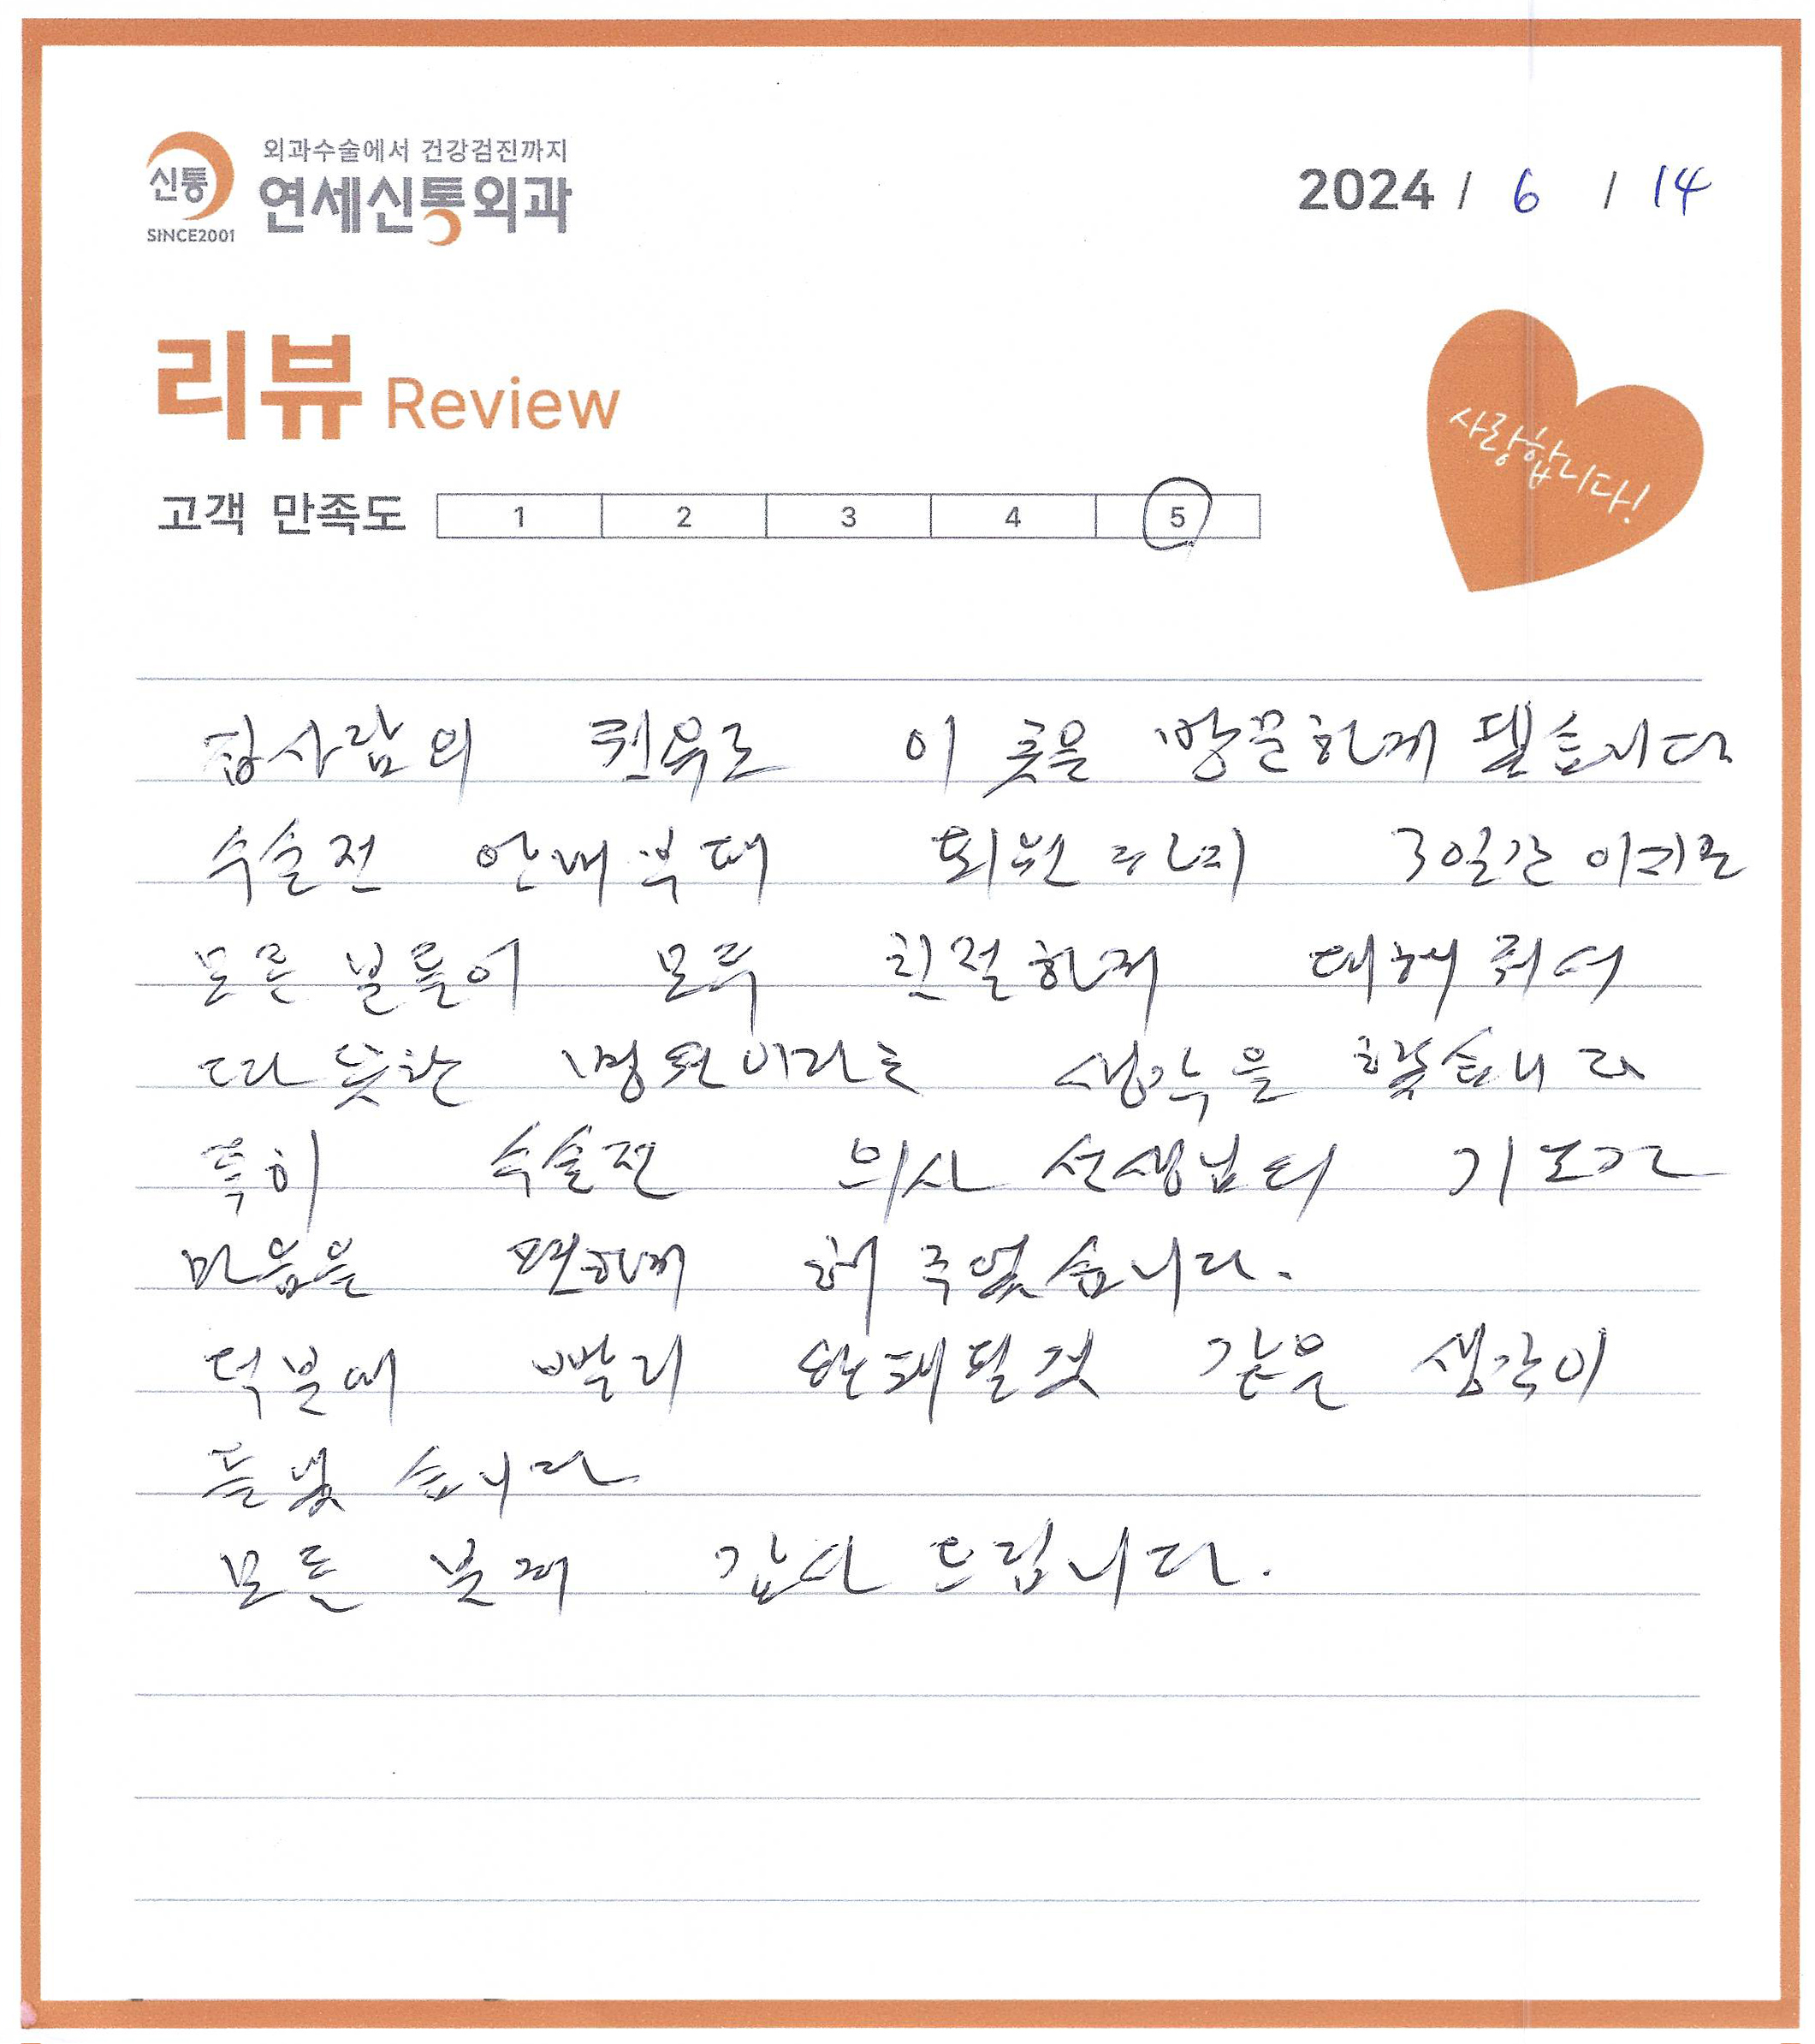 외과수술에서 건강검진까지
신통
연세신통외과
SINCE2001
2024 / 6 / 14
리뷰 Review
사랑합니다!
고객 만족도 1 2 3 4 5
집사람의 권유로 이 곳을 방문하게 됐습니다
수술전 안내부터 회원 까지 3일간 이지만
모든 분들이 모두 친절하게 대해 줘서
따뜻한 병원이라는 생각을 했습니다
특히 수술전 의사 선생님의 기도가
마음을 편하게 해 주었습니다.
덕분에 빨리 완쾌될것 같은 생각이
들었습니다
모든 분께 감사 드립니다.